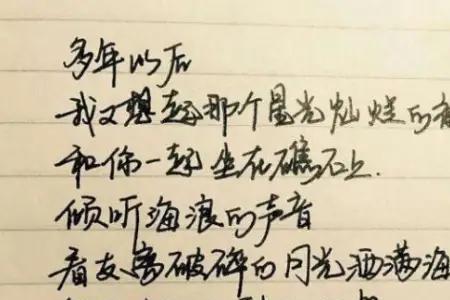 多年以后
我又想起那个星光灿烂的
和你一起坐在礁石上.
倾听海浪的声音
看支离破碎的月光洒满海